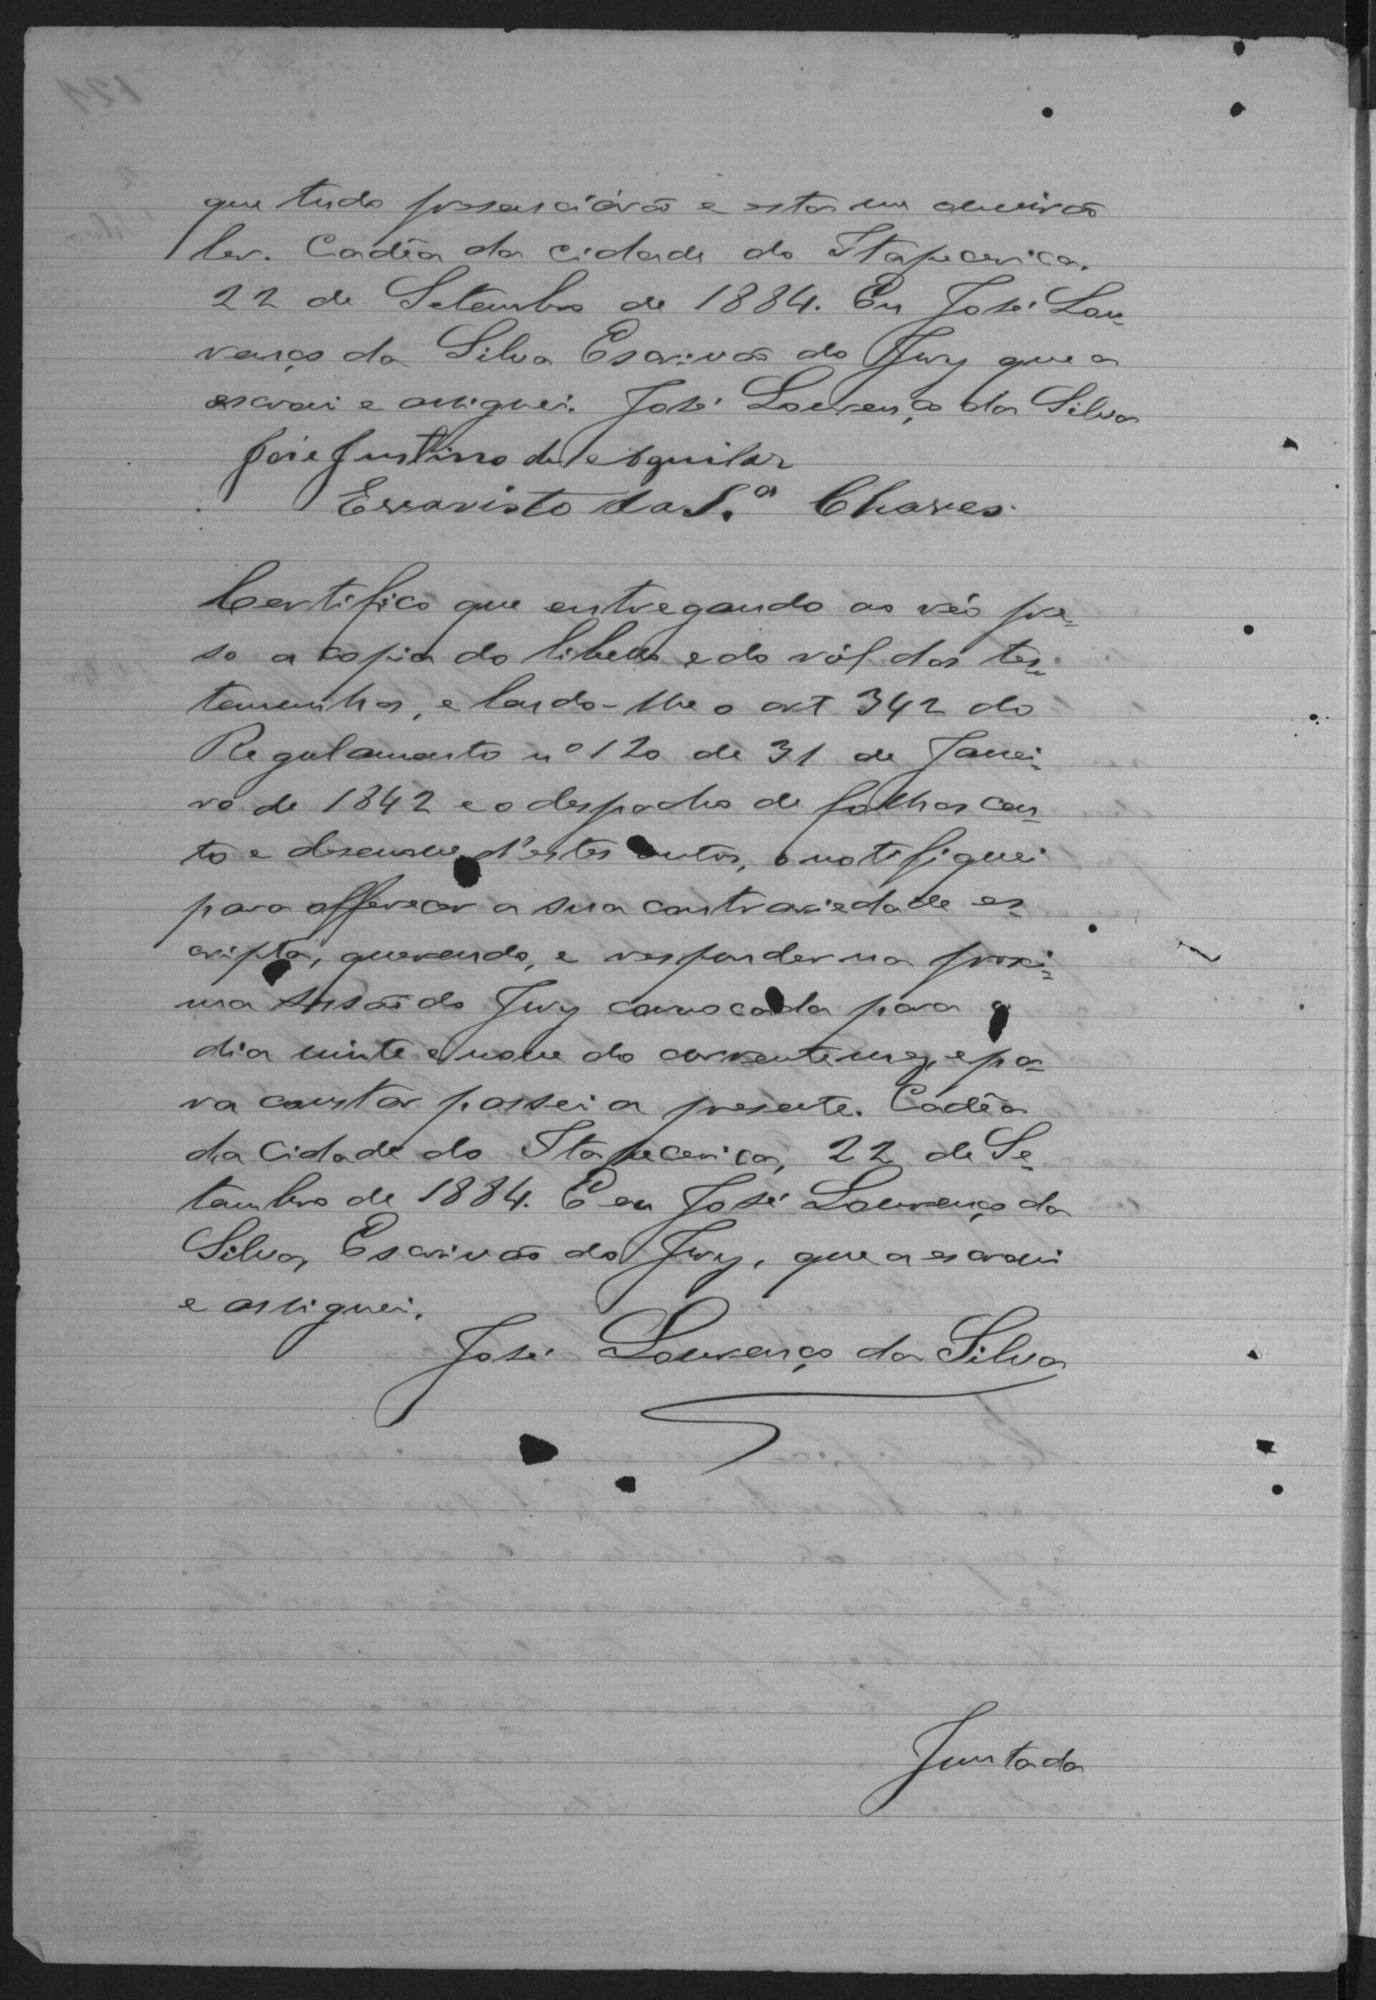 que tudo presenciárão e esta me ouvirão
ler. Cadêa da cidade do Itapecerica.
22 de Setembro de 1884. Eu José Lou-
renço da Silva Escrivão do Jury que a
escrevi e assignei. José Lourenço da Silva
José Justino de Aguilar
Evaristo da S.ª Chaves.
Certifico que entregando ao réo pre-
so a copia do libello e do ról das tes-
temunhas, e lendo-lhe o art 342 do
Regulamento nº 120 de 31 de Janei-
ro de 1842 e o despacho de folhas cen-
to e desenove d'estes autos, o notifiquei
para offerecer a sua contrariedade es-
cripta, querendo, e responder na proxi-
ma sessão do Jury convocada para o
dia vinte e nove do corrente mez, e pa-
ra constar passei a presente. Cadêa
da Cidade do Itapecerica, 22 de Se-
tembro de 1884. E eu José Lourenço da
Silva, Escrivão do Jury, que a escrevi
e assignei.
José Lourenço da Silva
Juntada